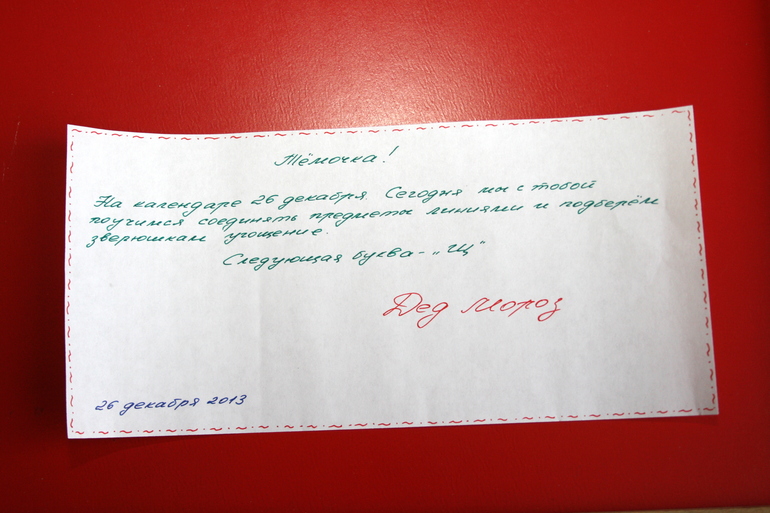 Тёмочка!
На календаре 26 декабря. Сегодня мы с тобой
поучимся соединять предметы линиями и подберём
зверюшкам угощение.
Следующая буква - „Щ"
Дед Мороз
26 декабря 2013